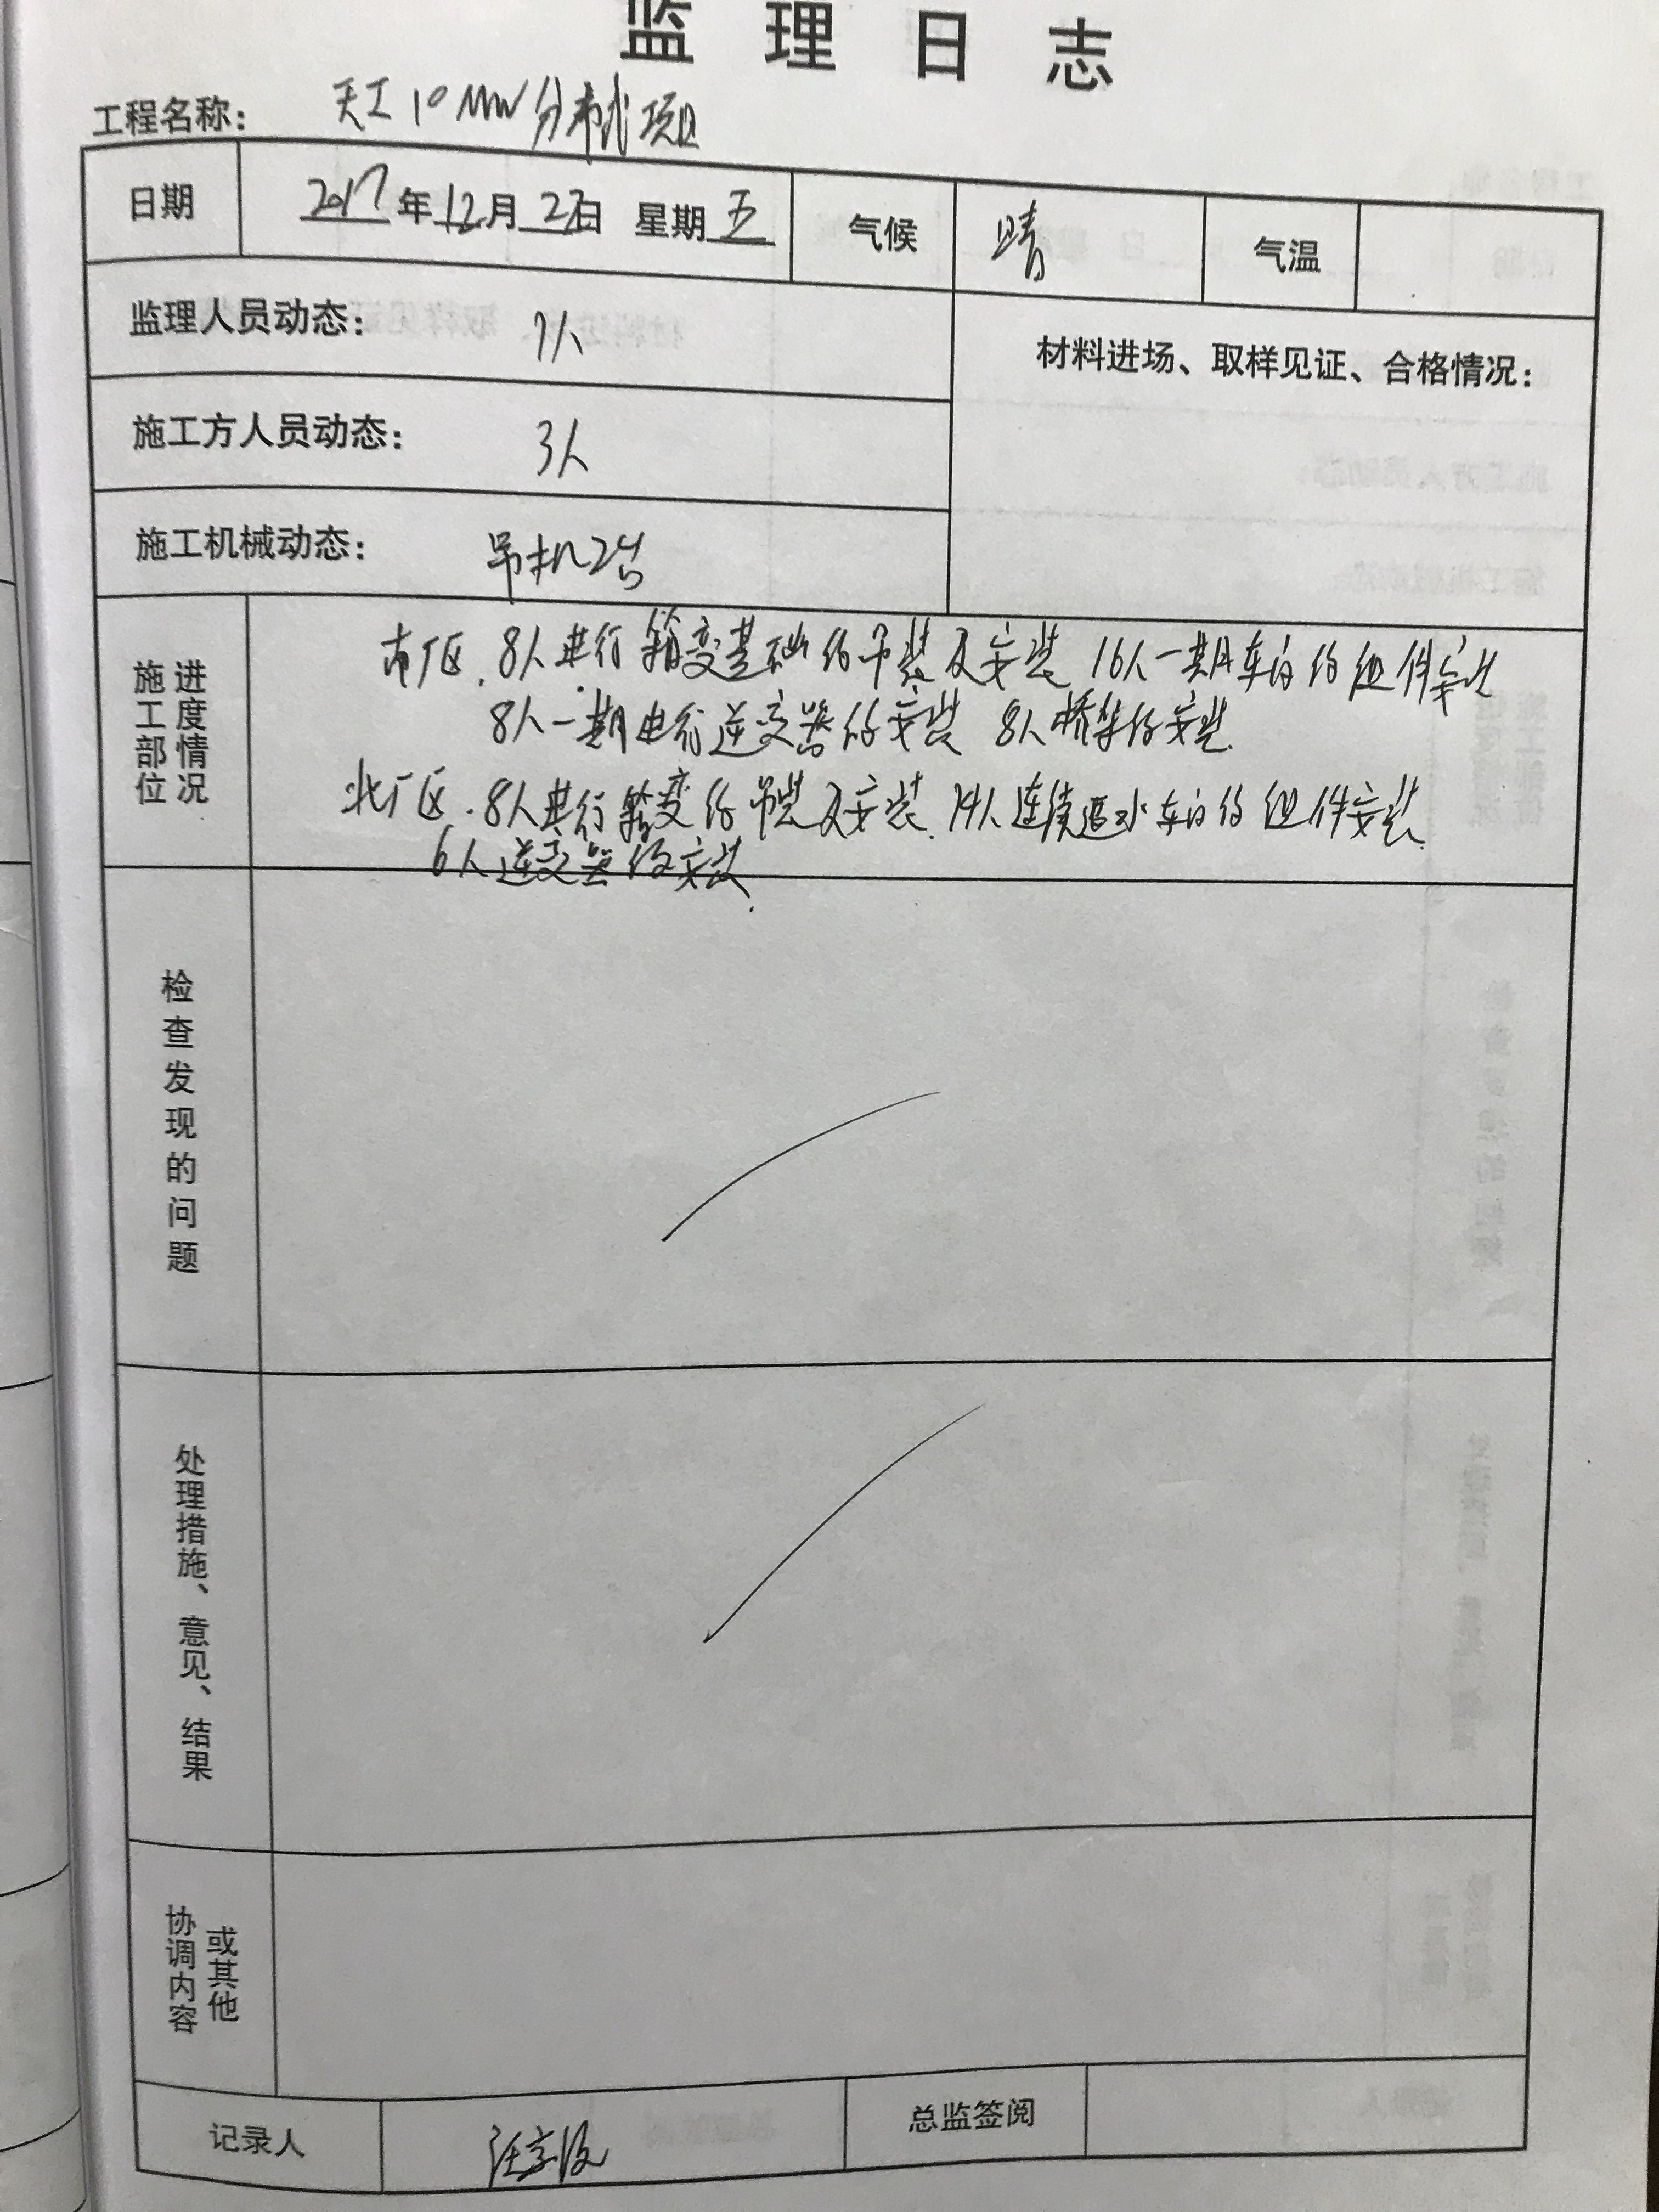 监理日志
工程名称： 天工10MW分布式项目
日期 2017年12月22日 星期五 气候 晴 气温
监理人员动态： 1人
材料进场、取样见证、合格情况：
施工方人员动态： 3人
施工机械动态： 吊机2台
施工部位
进度情况
南厂区.8人进行箱变基础的吊装及安装 16人一期车间的组件安装
8人一期进行逆变器的安装 8人桥架的安装.
北厂区.8人进行箱变的吊装及安装.14人连续退火车间的组件安装.
6人逆变器的安装.
检查发现的问题
处理措施、意见、结果
协调内容
或其他
记录人 总监签阅